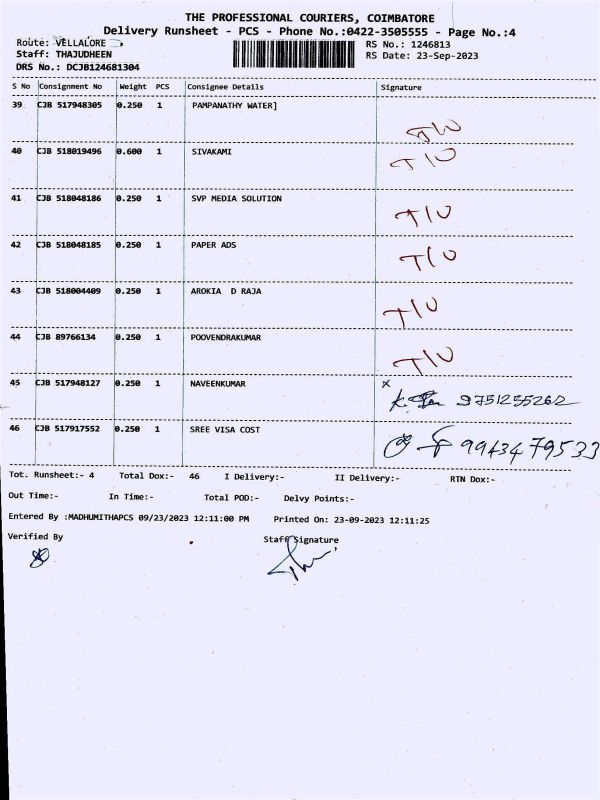 THE PROFESSIONAL COURIERS, COIMBATORE
Delivery Runsheet - PCS - Phone No.:0422-3505555 - Page No.:4
Route: VELLALORE RS No.: 1246813
Staff: THAJUDHEEN RS Date: 23-Sep-2023
DRS No.: DCJB124681304
S No Consignment No Weight PCS Consignee Details Signature
39 CJB 517948305 0.250 1 PAMPANATHY WATER]
T/U
40 CJB 518019496 0.600 1 SIVAKAMI T/U
41 CJB 518048186 0.250 1 SVP MEDIA SOLUTION T/U
42 CJB 518048185 0.250 1 PAPER ADS T/U
43 CJB 518004409 0.250 1 AROKIA D RAJA T/U
44 CJB 89766134 0.250 1 POOVENDRAKUMAR T/U
45 CJB 517948127 0.250 1 NAVEENKUMAR x
9751255262
46 CJB 517917552 0.250 1 SREE VISA COST 9943479533
Tot. Runsheet:- 4 Total Dox:- 46 I Delivery:- II Delivery:- RTN Dox:-
Out Time:- In Time:- Total POD:- Delvy Points:-
Entered By :MADHUMITHAPCS 09/23/2023 12:11:00 PM Printed On: 23-09-2023 12:11:25
Verified By Staff Signature